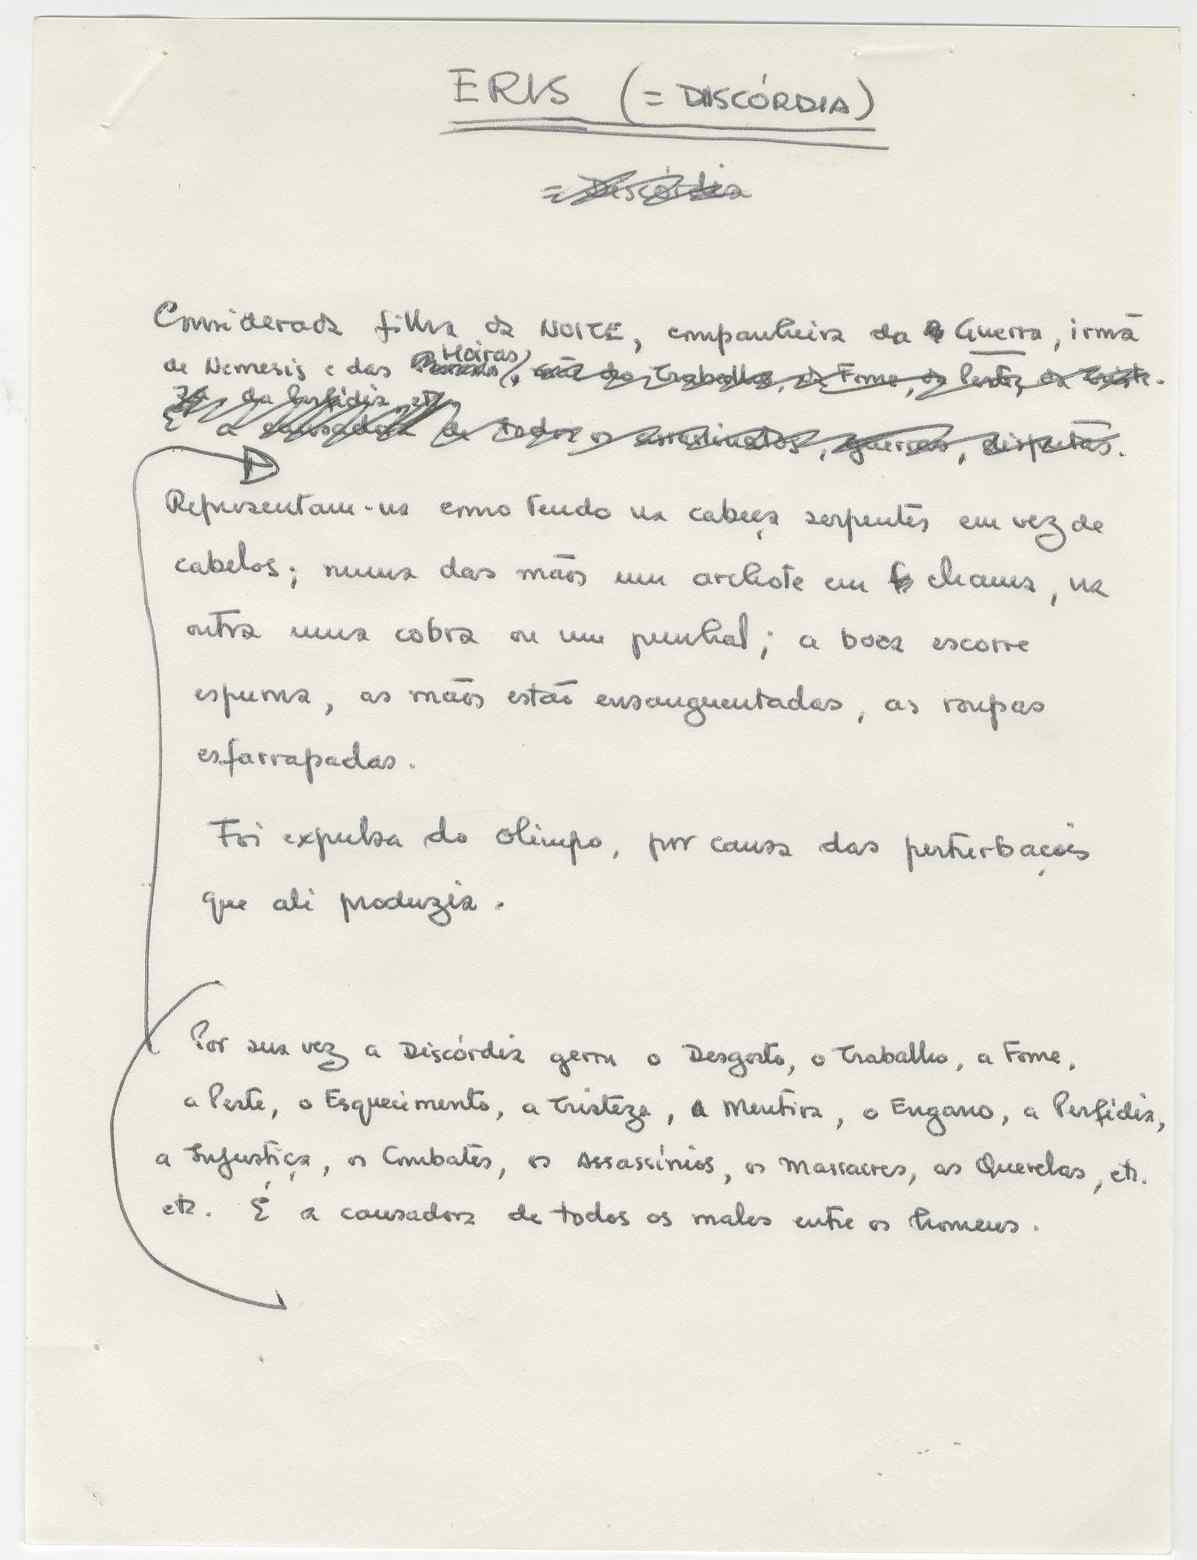 ERIS (= DISCÓRDIA)
= Discórdia
Considerada filha da NOITE, companheira da Guerra, irmã
de Nemesis e das Moiras, mãe do Trabalho, da Fome, da Peste, da Triste-
za, da Perfídia, etc.
É a causadora de todos os assassinatos, guerras, disputas.
Representam-na como tendo na cabeça serpentes em vez de
cabelos; numa das mãos um archote em chama, na
outra uma cobra ou um punhal; a boca escorre
espuma, as mãos estão ensanguentadas, as roupas
esfarrapadas.
Foi expulsa do Olimpo, por causa das perturbações
que ali produzia.
Por sua vez a Discórdia gerou o Desgosto, o Trabalho, a Fome,
a Peste, o Esquecimento, a Tristeza, a Mentira, o Engano, a Perfídia,
a Injustiça, os Combates, os Assassínios, os Massacres, as Querelas, etc.
etc. É a causadora de todos os males entre os homens.